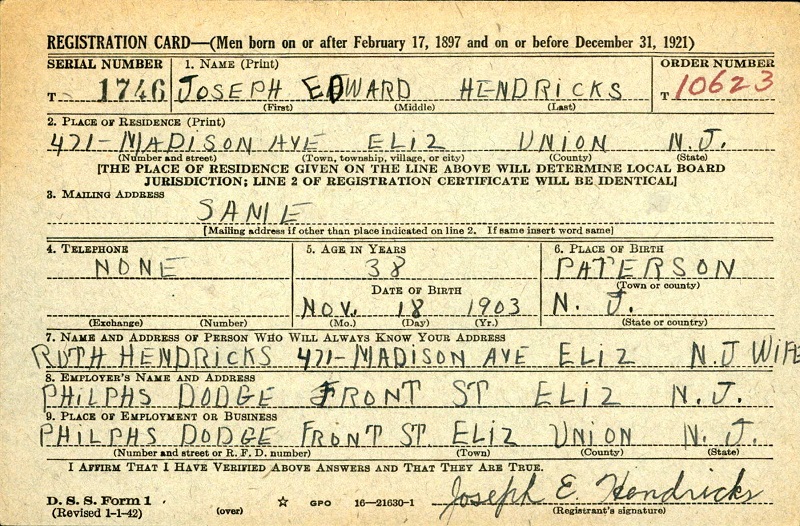 REGISTRATION CARD—(Men born on or after February 17, 1897 and on or before December 31, 1921)
SERIAL NUMBER 1. NAME (Print) ORDER NUMBER
T 1746 JOSEPH EDWARD HENDRICKS T 10623
(First) (Middle) (Last)
2. PLACE OF RESIDENCE (Print)
471-MADISON AVE ELIZ UNION N.J.
(Number and street) (Town, township, village, or city) (County) (State)
[THE PLACE OF RESIDENCE GIVEN ON THE LINE ABOVE WILL DETERMINE LOCAL BOARD
JURISDICTION; LINE 2 OF REGISTRATION CERTIFICATE WILL BE IDENTICAL]
3. MAILING ADDRESS
SAME
[Mailing address if other than place indicated on line 2. If same insert word same]
4. TELEPHONE 5. AGE IN YEARS 6. PLACE OF BIRTH
NONE 38 PATERSON
DATE OF BIRTH (Town or county)
NOV. 18 1903 N. J.
(Exchange) (Number) (Mo.) (Day) (Yr.) (State or country)
7. NAME AND ADDRESS OF PERSON WHO WILL ALWAYS KNOW YOUR ADDRESS
RUTH HENDRICKS 471-MADISON AVE ELIZ N.J WIFE
8. EMPLOYER'S NAME AND ADDRESS
PHILPHS DODGE FRONT ST ELIZ N.J.
9. PLACE OF EMPLOYMENT OR BUSINESS
PHILPHS DODGE FRONT ST. ELIZ UNION N. J.
(Number and street or R. F. D. number) (Town) (County) (State)
I AFFIRM THAT I HAVE VERIFIED ABOVE ANSWERS AND THAT THEY ARE TRUE.
D. S. S. Form 1 Joseph E. Hendricks
(Revised 1-1-42) (over) ☆ GPO 16—21630-1 (Registrant's signature)